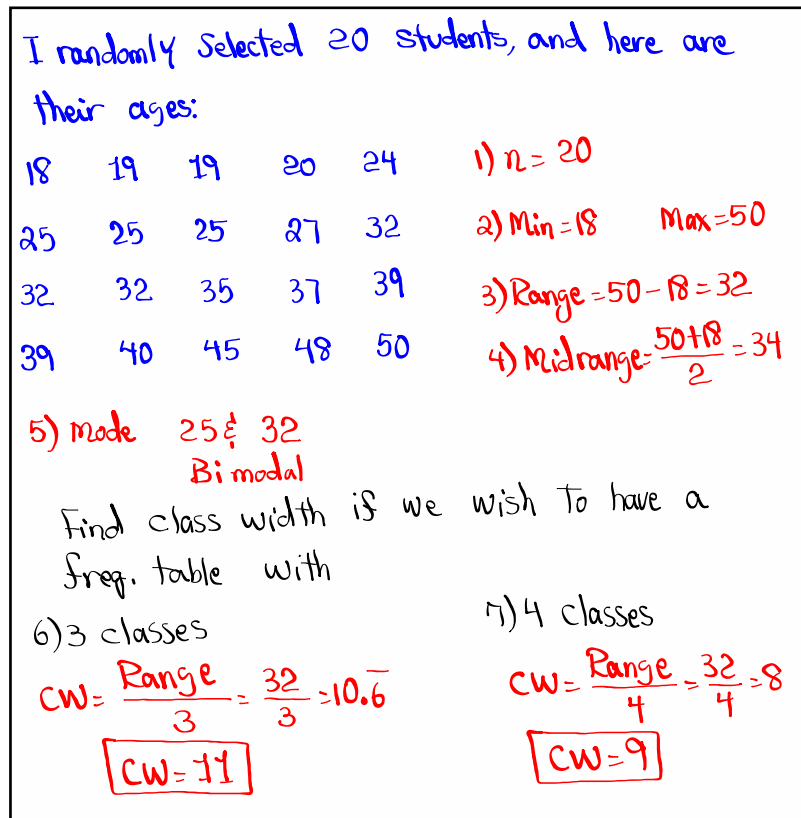 I randomly Selected 20 students, and here are
their ages:
18 19 19 20 24
25 25 25 27 32
32 32 35 37 39
39 40 45 48 50
1) n = 20
2) Min = 18 Max = 50
3) Range = 50 - 18 = 32
4) Midrange = (50+18)/2 = 34
5) Mode 25 & 32
Bimodal
Find class width if we wish To have a
freq. table with
6) 3 classes
CW = Range/3 = 32/3 = 10.6̅
CW = 11
7) 4 classes
CW = Range/4 = 32/4 = 8
CW = 9